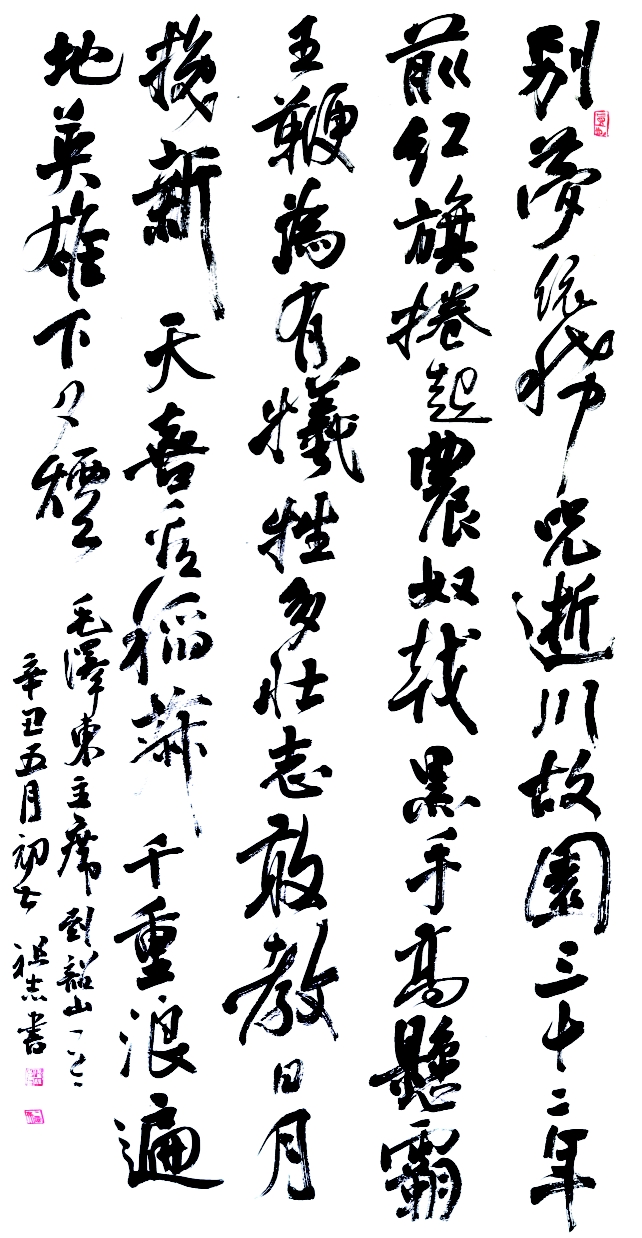 別夢依稀咒逝川故園三十二年
前紅旗捲起農奴戟黑手高懸霸
主鞭為有犧牲多壯志敢教日月
換新天喜看稻菽千重浪遍
地英雄下夕煙 毛澤東主席到韶山
辛丑五月初 祖志書